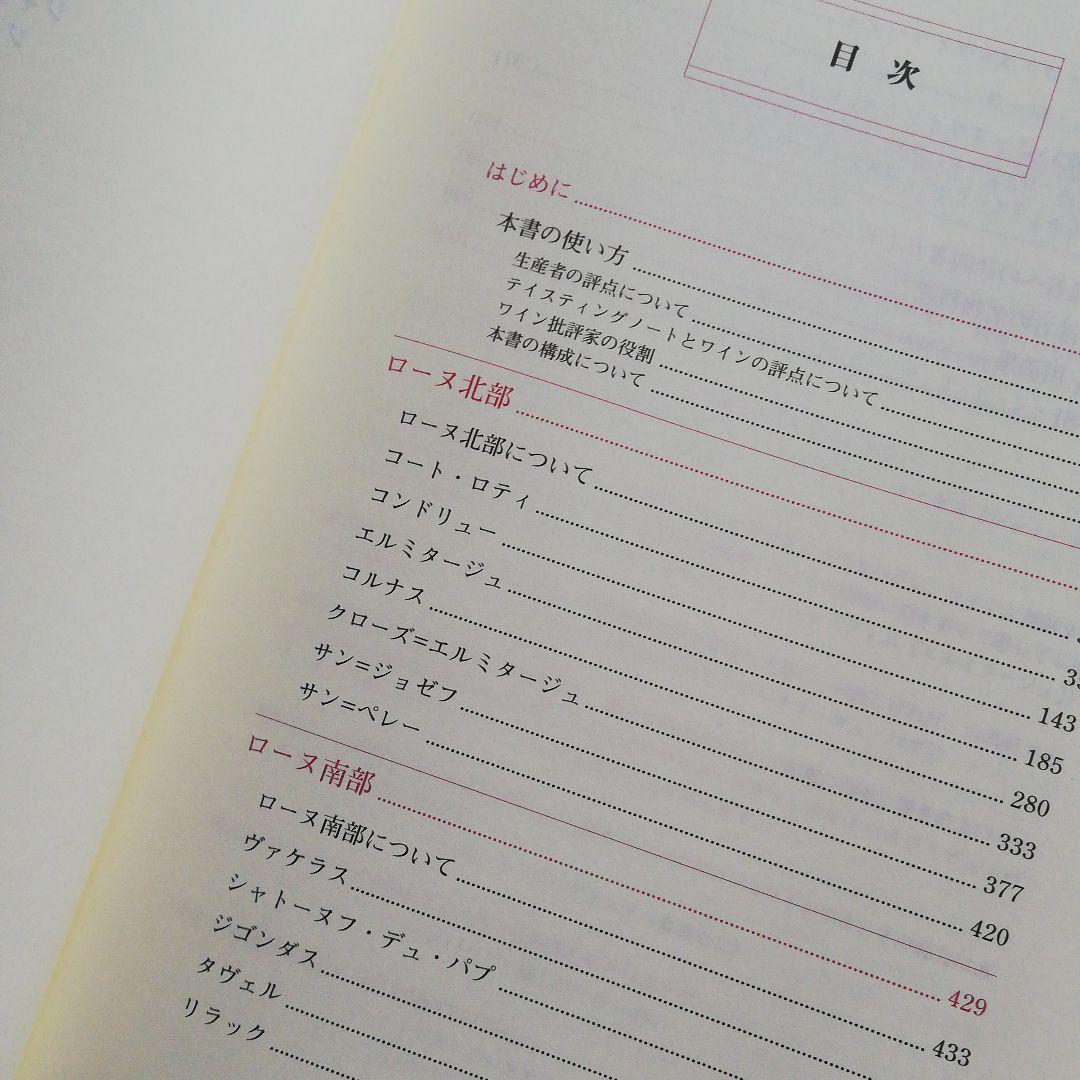 目次
はじめに
本書の使い方
生産者の評点について
テイスティングノートとワインの評点について
ワイン批評家の役割
本書の構成について
ローヌ北部
ローヌ北部について
コート・ロティ
コンドリュー 143
エルミタージュ 185
コルナス 280
クローズ=エルミタージュ 333
サン=ジョゼフ 377
サン=ペレー 420
ローヌ南部 429
ローヌ南部について 433
ヴァケラス
シャトーヌフ・デュ・パプ
ジゴンダス
タヴェル
リラック